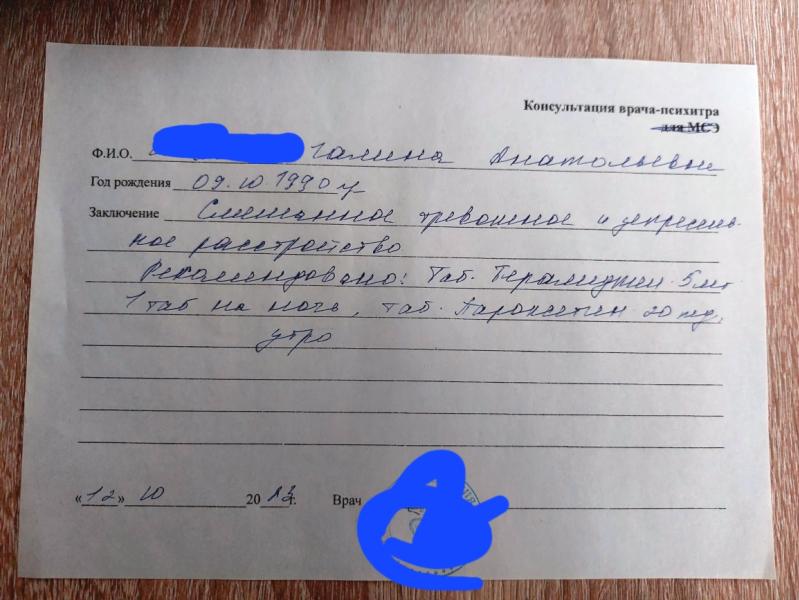 Консультация врача-психитра
для МСЭ
Ф.И.О. Галина Анатольевна
Год рождения 09.10.1990г
Заключение Смешанное тревожное и депрессив-
ное расстройство
Рекомендовано: Таб. Тералиджен 5мг
1 таб на ночь, таб. Пароксетин 20 мг,
утро
«12» 10 2023г. Врач